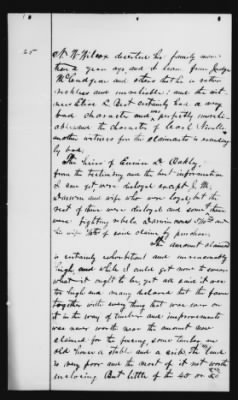 25
N. W. Wilcox deserted his family more
than a year ago and I learn from Judge
McLendon and others that he is rather
reckless and unreliable and the wit-
ness Elias L. Bert certainly had a very
bad character and was perfectly unreli-
able and the character of
another witness for the claimants is exceeding
ly bad.
The heirs of Erwin D. Oakley,
from the testimony and the best information
I can get were disloyal except J. M.
Dawson and wife who were loyal, but the
rest of them were disloyal and some of them
were fighting rebels Dawson owns and
his wife of said claim by purchase.
The amount claimed
is certainly exhorbitant and unreasonably
high, and while I could get none to swear
what it ought to be, yet all said it was
too high and many believed that the farm
together with every thing that was ever on
it in the way of timber and improvements
was never worth near the amount now
claimed for the fencing, some timber an
old house a stable and a crib. The land
is very poor and the most of it not worth
inclosing But little of the 40 or 50